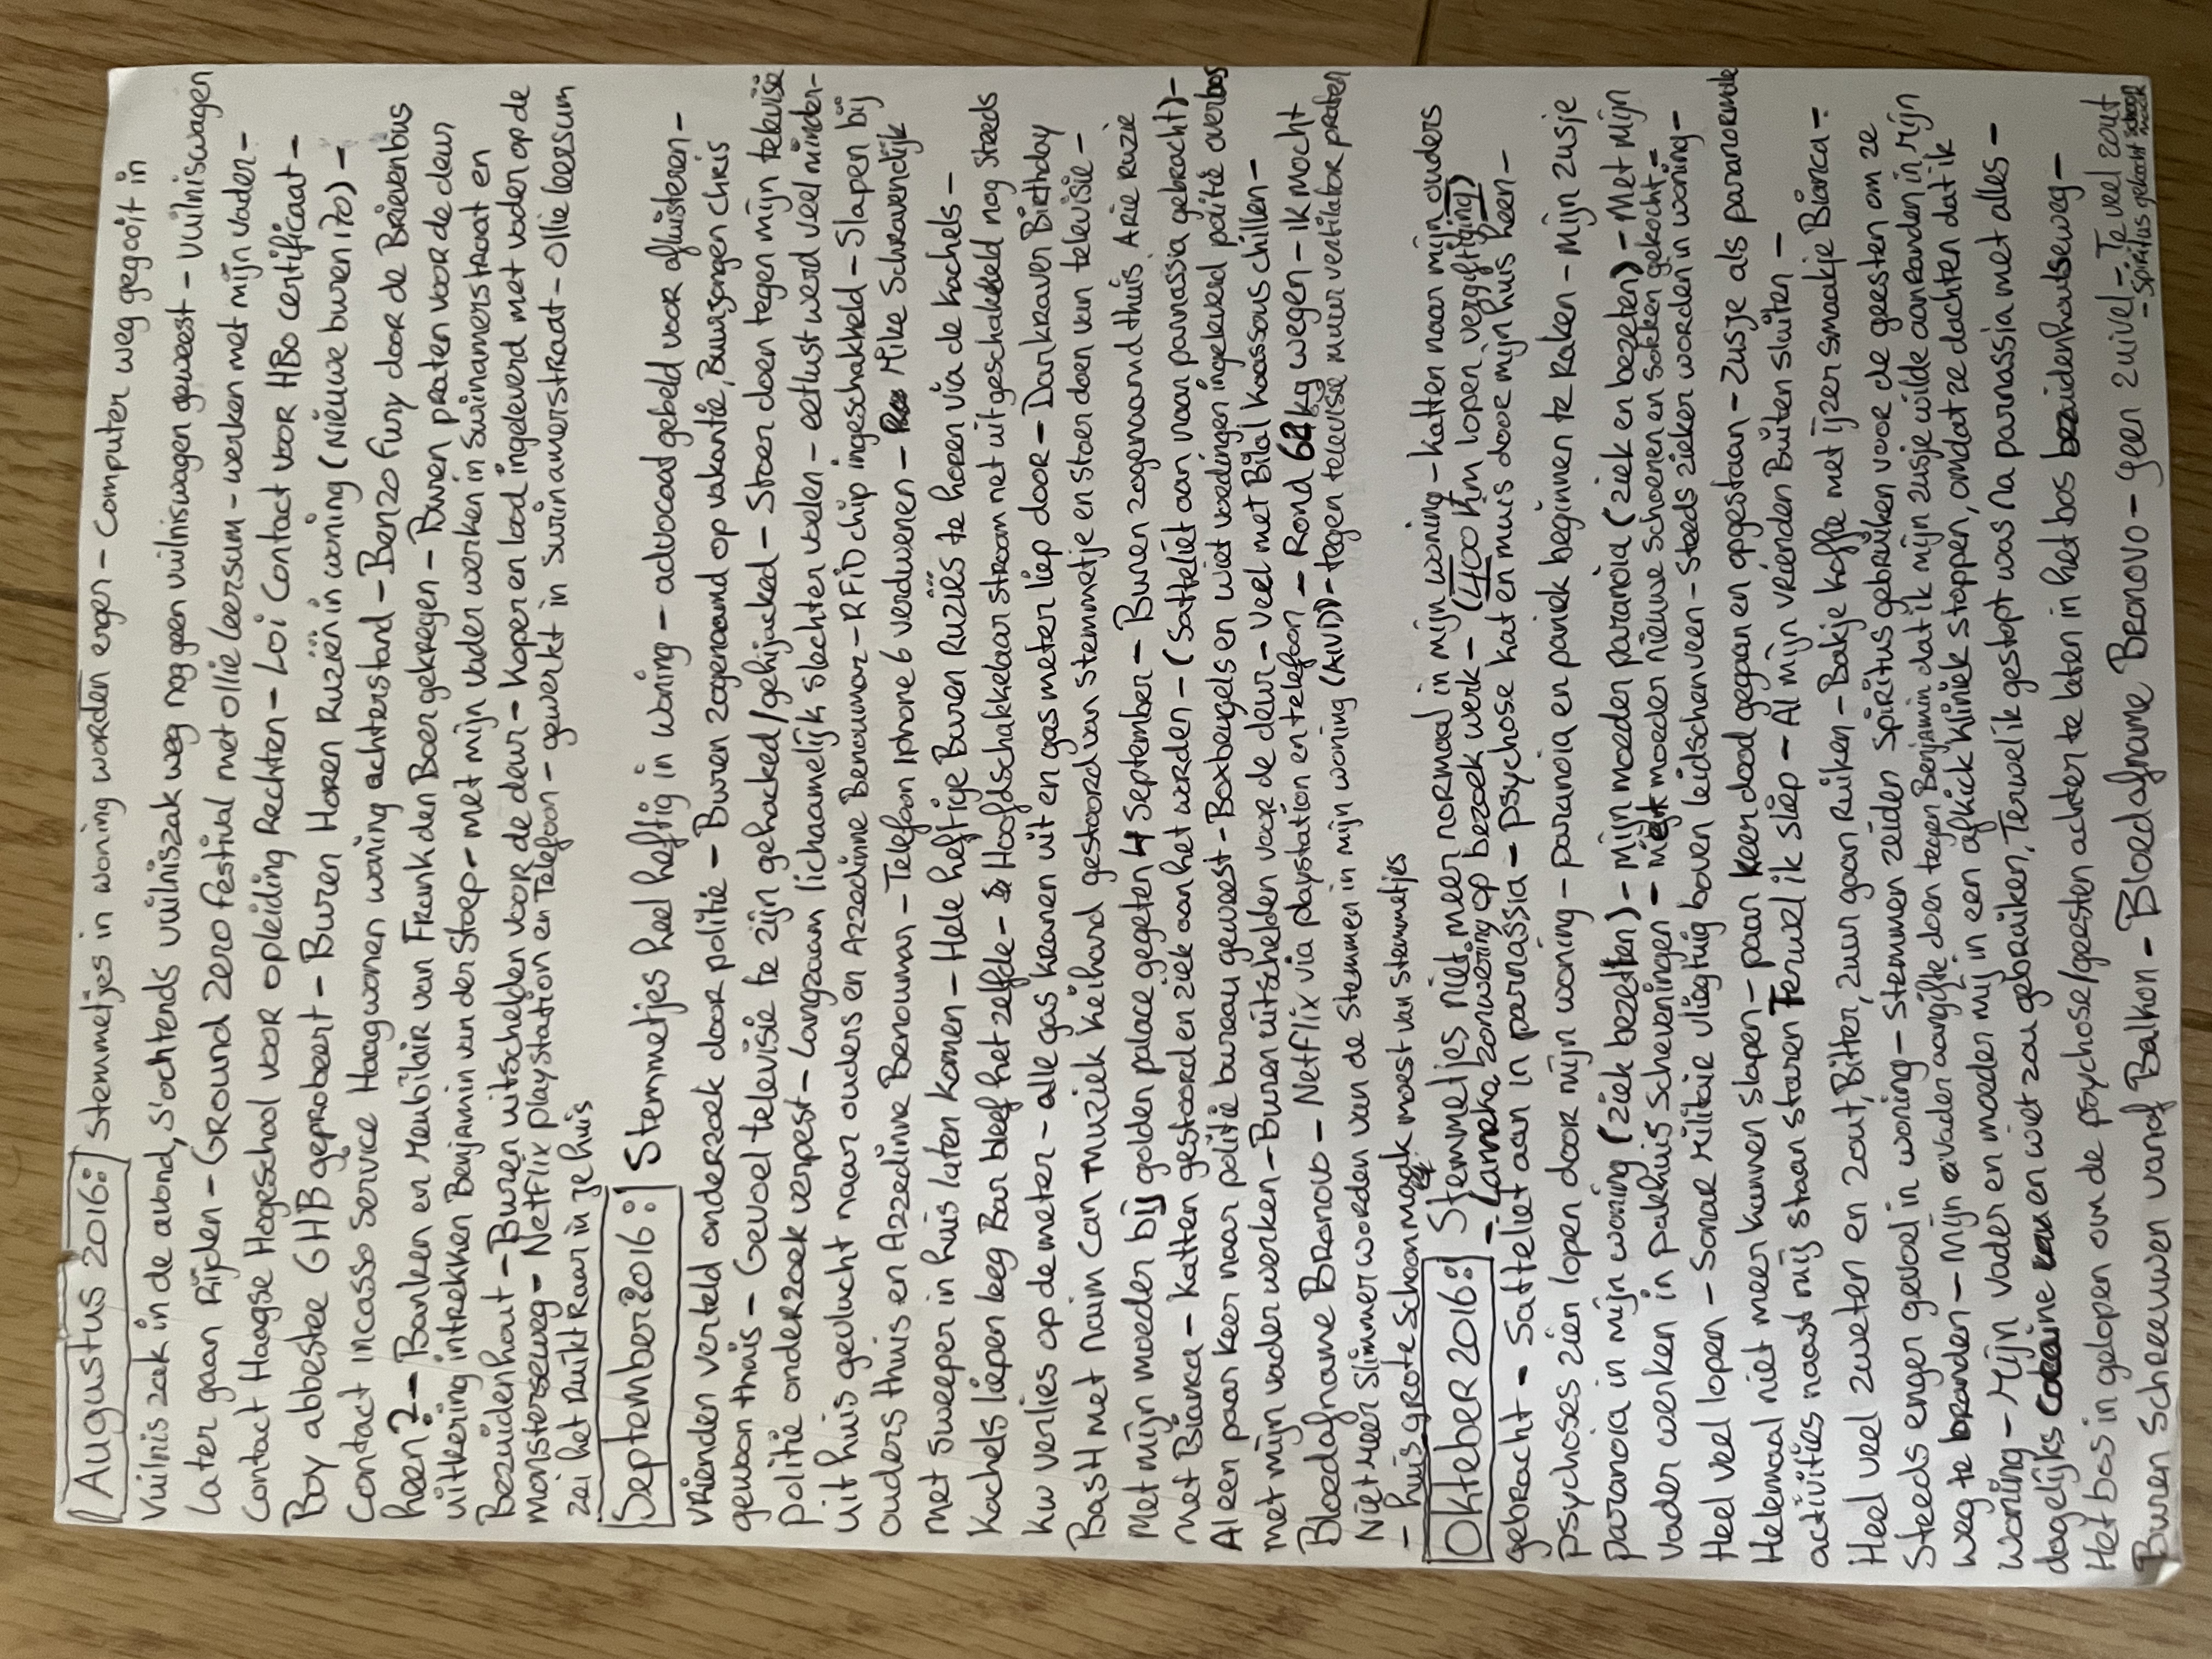 Augustus 2016: Stemmetjes in woning worden enger - Computer weg gegooit in
Vuilnis zak in de avond, s'ochtends vuilniszak weg nog geen vuilniswagen geweest - vuilniswagen
Later gaan Rijden - GRound Zero festival met ollie leersum - werken met mijn vader -
Contact Haagse Hogeschool voor opleiding Rechten - Loi Contact voor HBO certificaat -
Boy abbestee GHB geprobeert - Buren Horen Ruziën in woning (Nieuwe buren 170) -
Contact incasso service Haagwonen woning achterstand - Benzo Fury door de Brievenbus
heen? - Banken en Meubilair van Frank den Boer gekregen - Buren praten voor de deur
uitkering intrekken Benjamin van der Stoep - met mijn vader werken in Surinamerstraat en
Bezuidenhout - Buren uitschelden voor de deur - Koper en lood ingeleverd met vader op de
monsterseweg - Netflix playstation en Telefoon - gewerkt in Surinamerstraat - Ollie leersum
zei het Ruikt Raar in je huis
September 2016: Stemmetjes heel heftig in woning - advocaat gebeld voor afluisteren -
vrienden verteld onderzoek door politie - Buren zogenaamd op vakantie, Buurjongen chris
gewoon thuis - Gevoel televisie te zijn gehacked/gehijacked - Stoer doen tegen mijn televisie
politie onderzoek verpest - Langzaam lichaamelijk slechter voelen - eetlust werd veel minder -
uit huis gevlucht naar ouders en Azzedinne Benoumar - RFiD chip ingeschakeld - Slapen bij
ouders thuis en Azzedinne Benoumar - Telefoon iphone 6 verdwenen - Mike Schravendijk
met sweeper in huis laten komen - Hele heftige Buren Ruziës te horen via de kachels -
Kachels liepen leeg Bar bleef het zelfde - Hoofdschakkelaar stroom net uitgeschakeld nog steeds
kw verlies op de meter - alle gas kranen uit en gasmeter liep door - Darkraver Birthday
Bash met naim Can muziek keihard gestoord van stemmetje en stoer doen van televisie -
Met mijn moeder bij golden palace gegeten 4 September - Buren zogenaamd thuis. Arie Ruzie
met Bianca - Katten gestoord en ziek aan het worden - (Satteliet aan naar parnassia gebracht) -
Al een paar keer naar politie bureau geweest - Boxbeugels en wiet voedingen ingeleverd politie overbos
met mijn vader werken - Buren uitschelden voor de deur - Veel met Bilal kaassous chillen -
Bloedafname Bronovo - Netflix via playstation en telefoon - Rond 62 kg wegen - ik mocht
Niet meer slimmer worden van de stemmen in mijn woning (AIVD) - tegen televisie muur ventilator praten
- huis grote schoonmaak moest van stemmetjes
Oktober 2016: Stemmetjes niet meer normaal in mijn woning - Katten naar mijn ouders
- (anneka zonwering op bezoek werk - (400 km lopen vergiftiging)
gebracht - Satteliet aan in parnassia - psychose kat en muis door mijn huis heen -
psychoses zien lopen door mijn woning - paranoia en paniek beginnen te Raken - mijn zusje
paranoia in mijn woning (ziek bezeten) - mijn moeder paranoia (ziek en bezeten) - Met mijn
vader werken in pakhuis Scheveningen - moeder nieuwe schoenen en sokken gekocht -
Heel veel lopen - Sonar Militaie vliegtuig boven leidschenveen - Steeds zieker worden in woning -
Helemaal niet meer kunnen slapen - paar keer dood gegaan en opgestaan - Zusje als paranormale
activities naast mij staan staren Terwel ik sliep - Al mijn vrienden Buiten sluiten -
Heel veel zweten en zout, Bitter, zuur gaan Ruiken - Bakje koffie met ijzer smaakje Bianca -
Steeds enger gevoel in woning - Stemmen zeiden Spiritus gebruiken voor de geesten om ze
weg te branden - Mijn vader aangifte doen tegen Benjamin dat ik mijn zusje wilde aanranden in zijn
woning - Mijn vader en moeder mij in een afkick kliniek stoppen, omdat ze dachten dat ik
dagelijks cocaïne en wiet zou gebruiken, Terwel ik gestopt was na parnassia met alles -
Het bos in gelopen om de psychose/geesten achter te laten in het bos bezuidenhoutseweg -
Buren Schreeuwen vanaf Balkon - Bloedafname Bronovo - geen zuivel - Te veel zout
- Spiritus gekocht schoon maak